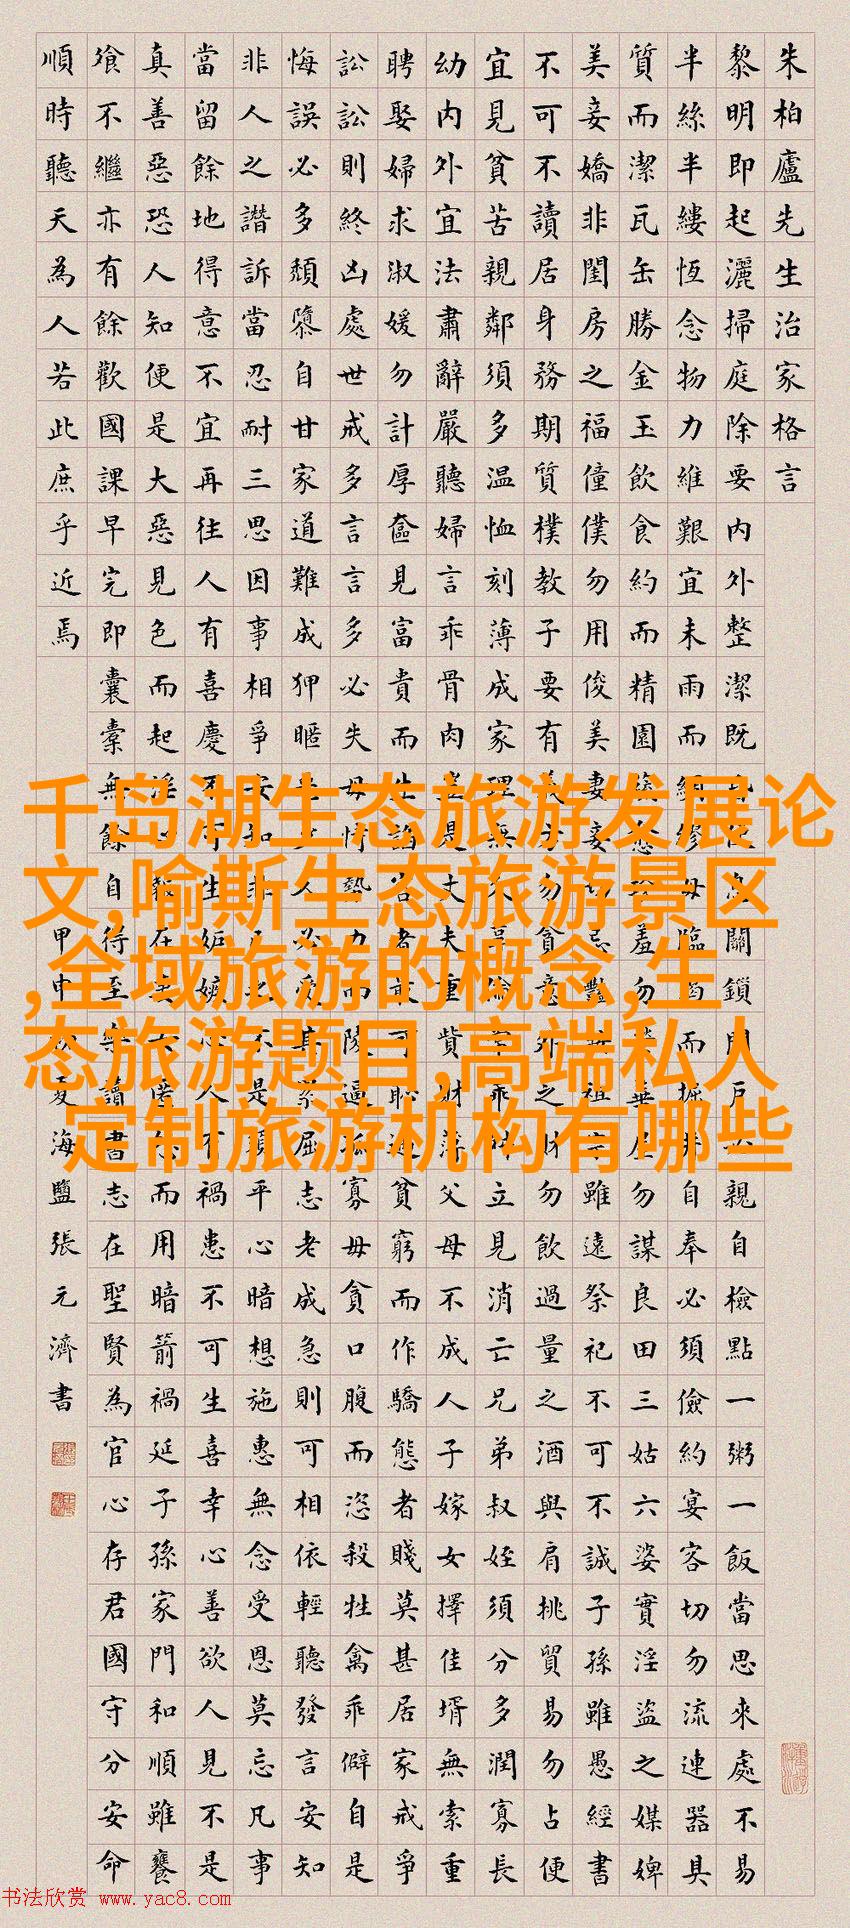 朱柏廬先生治家格言
黎明即起灑掃庭除要內外整潔既息關鎖門戶親自檢點一粥一飯當思來處不易
半絲半縷恆念物力維艱宜未雨而綢繆毋臨而掘自奉必須儉約宴客切勿流連器具
質而潔瓦缶勝金玉飲食約而精園羞勿華屋勿謀良田三姑六婆實淫盜之媒婢
美妾嬌非閨房之福僮僕勿用俊美妻妾忌豔祖雖遠祭祀不可不誠子孫雖愚經書
不可不讀居身務期質樸教子要有義方勿貪意外之財勿飲過量之酒與肩挑貿易勿占便
宜見貧苦親鄰須多温恤刻薄成家理無乖立見消亡兄弟叔姪須分多潤寡長
幼內外宜法肅辭嚴聽婦言乖骨肉豈是丈夫重貲財薄父母不成人子嫁女擇佳壻無索重
聘娶婦求淑媛勿計厚奩見富貴而生諂者可恥貧窮而作驕態者賤莫甚居家戒爭
訟訟則終凶處世戒多言言多必失毋恃勢力而陵逼孤寡毋貪口腹而恣殺牲禽乖僻自是
悔誤必多頹隳自甘家道難成狎暱人必受其累屈志老成急則可相依輕聽發言安知
非人之譖訴當忍耐三思因事相爭安知非之不是平心暗想施惠無念受恩莫忘凡事
當留餘地得意不宜再往人有喜慶不可生妬嫉心人有禍患不可生喜幸心善欲人見不是
真善惡恐人知便是大惡見色而起淫報在匿而用暗箭禍延子孫家門和順雖饔
飧不繼亦有餘歡國課早完即囊橐無餘自得至樂讀書志在聖賢為官心存君國守分安命
順時聽天為人若此庶乎近焉
甲申夏海鹽張元濟書
千岛湖生态旅游发展论
文,喻斯生态旅游景区
,全域旅游的概念,生
态旅游题目,高端私人
定制旅游机构有哪些
书法欣赏 www.yac8.com